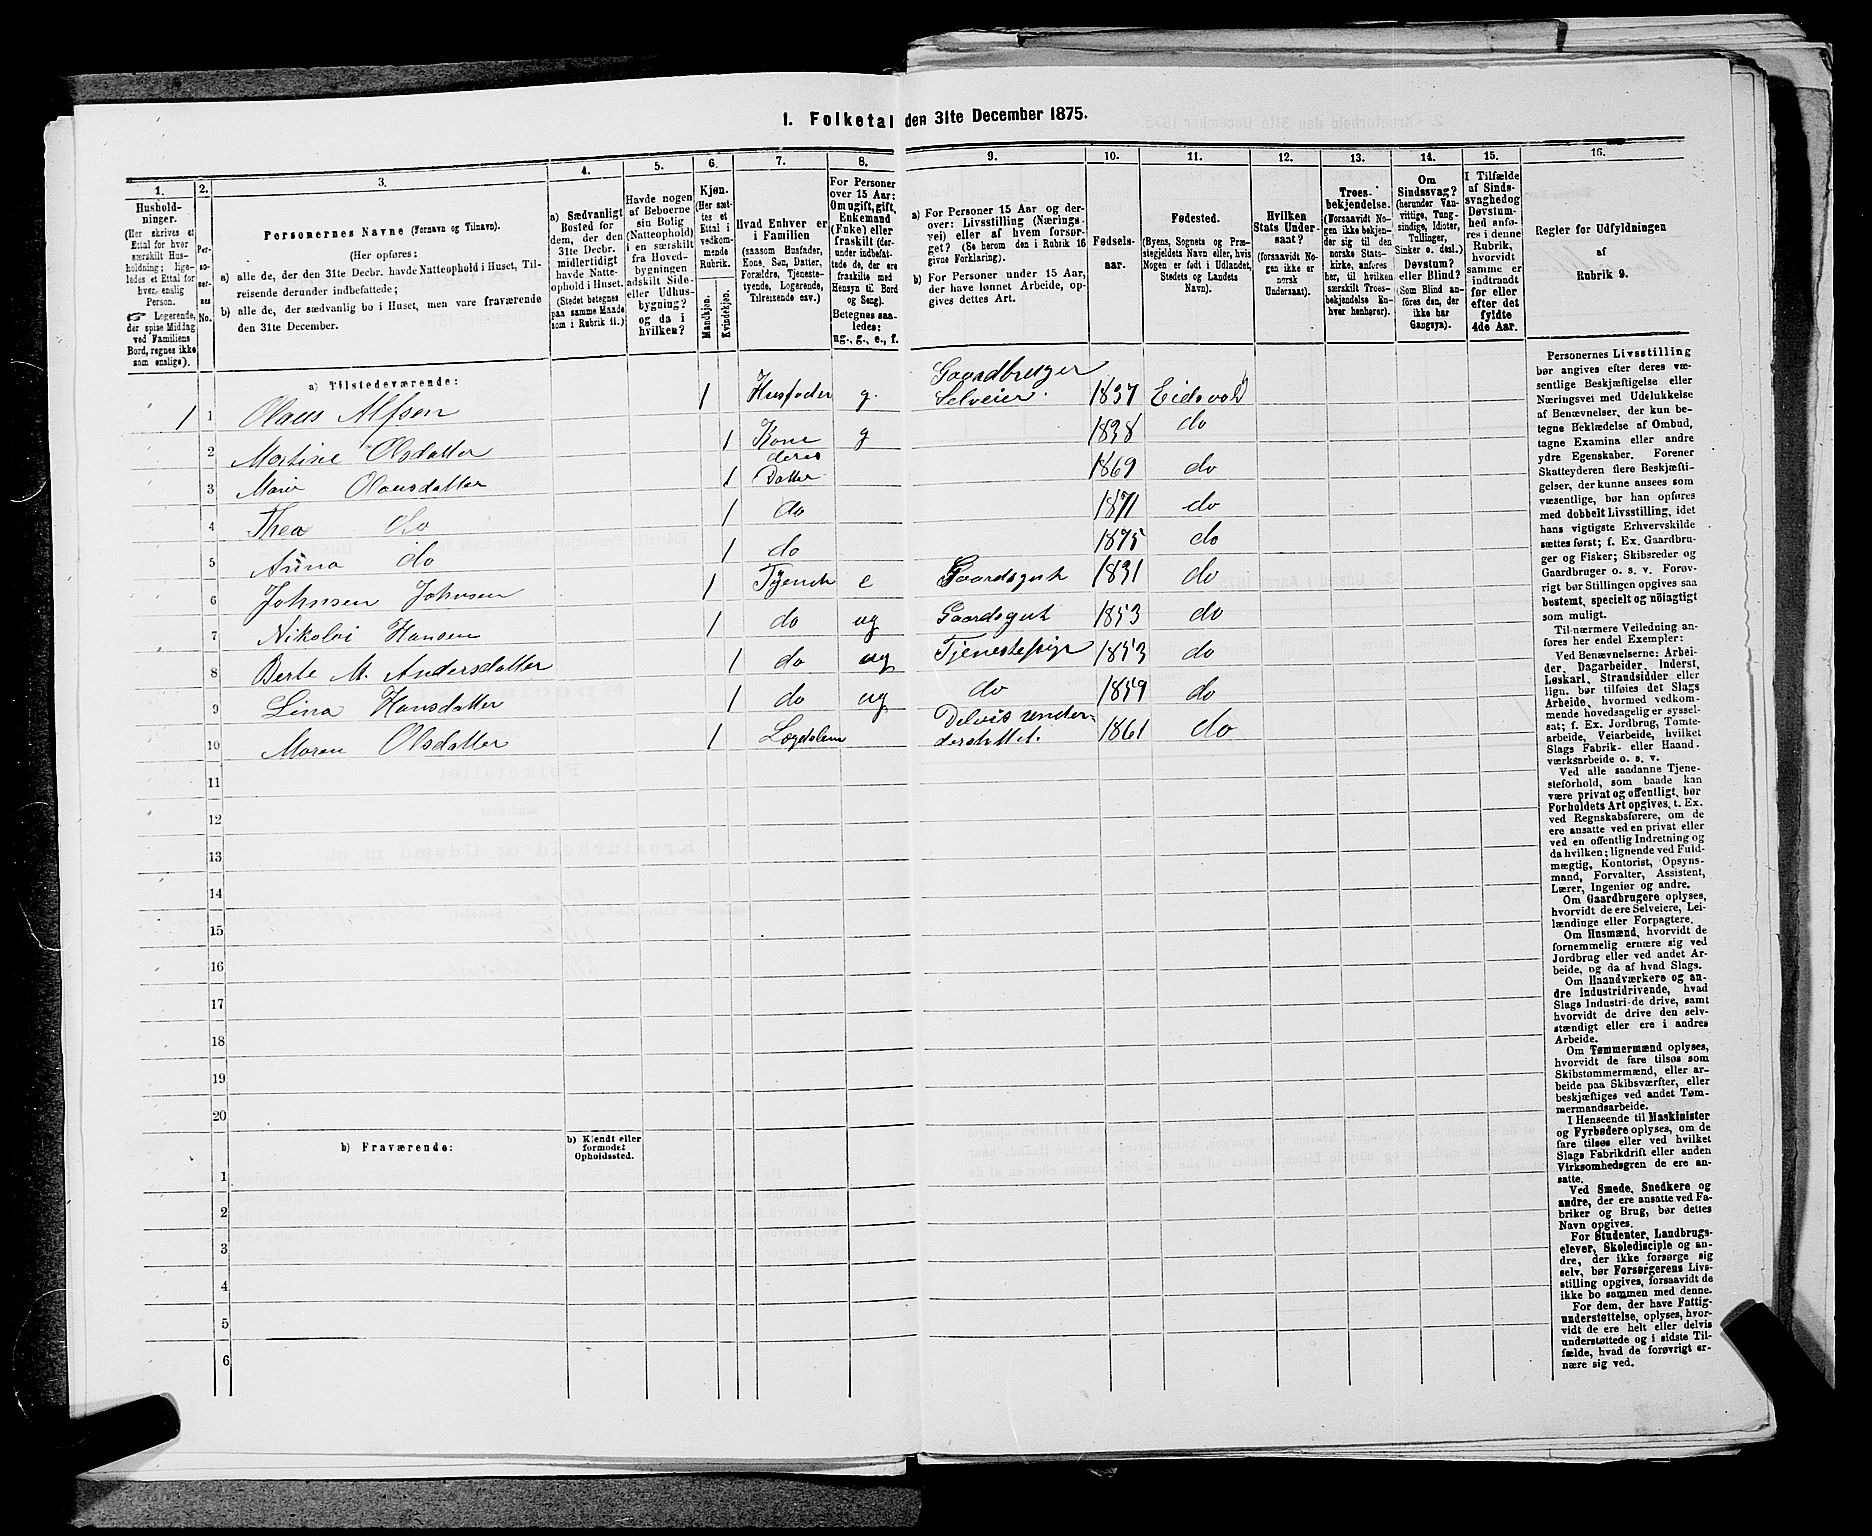 1. Folketal den 31te December 1875.
1.
2.
3.
4.
5.
6.
7.
8.
9.
10.
11.
12.
13.
14.
15.
16.
Hushold-
ninger.
(Her skrives et
Ettal for hver
særskilt Hus-
holdning; lige-
ledes et Ettal for
hver enslig
Person.
☞ Logerende,
der spise Middag
ved Familiens
Bord, regnes ikke
som enslige).
Per-
so-
ner-
nes
No.
Personernes Navne (Fornavn og Tilnavn).
(Her opføres:
a) alle de, der den 31te Decbr. havde Natteophold i Huset, Til-
reisende derunder indbefattede;
b) alle de, der sædvanlig bo i Huset, men vare fraværende
den 31te December.
a) Sædvanligt
Bosted for
dem, der den
31te Decbr.
midlertidigt
havde Natte-
ophold i Huset.
(Stedet betegnes
paa samme Maade
som i Rubrik 11.)
Havde nogen
af Beboerne
sin Bolig
(Natteophold)
i en særskilt
fra Hoved-
bygningen
adskilt Side-
eller Udhus-
bygning?
og da i
hvilken?
Kjøn.
(Her sæt-
tes et
Ettal i
vedkom-
mende
Rubrik.
Mandkjøn.
Kvindekjøn.
Hvad Enhver er
i Familien
(saasom Husfader,
Kone, Søn, Datter,
Forældre, Tjeneste-
tyende, Logerende,
Tilreisende osv.)
For Personer
over 15 Aar:
Om ugift, gift,
Enkemand
(Enke) eller
fraskilt (der-
under indbefat-
tede de, der ere
fraskilte med
Hensyn til Bord
og Seng).
Betegnes saa-
ledes:
ug., g., e., f.
a) For Personer 15 Aar og der-
over: Livsstilling (Nærings-
vei) eller af hvem forsør-
get? (Se herom den i Rubrik 16
givne Forklaring).
b) For Personer under 15 Aar,
der have lønnet Arbeide, op-
gives dettes Art.
Fødsels-
aar.
Fødested.
(Byens, Sognets og Præ-
stegjeldets Navn eller, hvis
Nogen er født i Udlandet,
Stedets og Landets
Navn).
Hvilken
Stats Under-
saat?
(forsaavidt No-
gen ikke er
norsk
Undersaat).
Troes-
bekjendelse.
(Forsaavidt No-
gen ikke bekjen-
der sig til den
norske Stats-
kirke, anføres
her, til hvilken
særskilt Troes-
bekjendelse En-
hver henhører).
Om
Sindssvag?
(herunder Van-
vittige, Tung-
sindige, Idioter,
Tullinger,
Sinker o. desl.)
Døvstum?
eller Blind?
(Som Blind an-
føres den, der
ikke har
Gangsyn).
I Tilfælde
af Sinds-
svaghed og
Døvstum-
hed anfø-
res i denne
Rubrik,
hvorvidt
samme er
indtraadt
før eller
efter det
fyldte
4de Aar.
Regler for Udfyldningen
af
Rubrik 9.
a) Tilstedeværende:
1 1 Olaus Alfsen 1 Husfader g. Gaardbruger Selveier. 1837 Eidsvold
2 Martine Olsdatter 1 Kone g 1838 do
3 Marie Olausdatter 1 deres Datter 1869 do
4 Thea do 1 do 1871 do
5 Anna do 1 do 1875 do
6 Johnsen Johnsen 1 Tyende e Gaardsgut 1831 do
7 Nikolai Hansen 1 do ug Gaardsgut 1853 do
8 Berte M. Andersdatter 1 do ug Tjenestepige 1853 do
9 Lina Hansdatter 1 do ug do 1859 do
10 Maren Olsdatter 1 Lægdslem Delvis under- 1861 do
11
12
13
14
15
16
17
18
19
20
b) Fraværende:
b) Kjendt eller
formodet
Opholdssted.
1
2
3
4
5
6
Personernes Livsstilling
bør angives efter deres væ-
sentlige Beskjæftigelse eller
Næringsvei med Udelukkelse
af Benævnelser, der kun be-
tegne Beklædelse af Ombud,
tagne Examina eller andre
ydre Egenskaber. Forener
Skatteyderen flere Beskjæfti-
gelser, der kunne ansees som
væsentlige, bør han opføres
med dobbelt Livsstilling, idet
hans vigtigste Erhvervskilde
sættes først; f. Ex. Gaardbru-
ger og Fisker; Skibsreder og
Gaardbruger o. s. v. Forøv-
rigt bør Stillingen opgives saa
bestemt, specielt og nøiagtigt
som muligt.
Til nærmere Veiledning an-
føres her endel Exempler:
Ved Benævnelserne: Arbei-
der, Dagarbeider, Inderst,
Løskarl, Strandsidder eller
lign. bør tilføies det Slags
Arbeide, hvormed vedkom-
mende hovedsagelig er syssel-
sat; f. Ex. Jordbrug, Tomte-
arbeide, Veiarbeide, hvilket
Slags Fabrik- eller Haand-
værksarbeide o. s. v.
Ved alle saadanne Tjene-
steforhold, som baade kan
være privat og offentligt, bør
Forholdets Art opgives, t. Ex.
ved Regnskabsførere, om de
ere ansatte ved en privat eller
ved en offentlig Indretning og
da hvilken; lignende ved Fuld-
mægtig, Kontorist, Opsyns-
mand, Forvalter, Assistent,
Lærer, Ingeniør og andre.
Om Gaardbrugere oplyses,
hvorvidt de ere Selveiere, Lei-
lændinge eller Forpagtere.
Om Husmænd, hvorvidt de
fornemmelig ernære sig ved
Jordbrug eller ved andet Ar-
beide, og da af hvad Slags.
Om Haandværkere og an-
dre Industridrivende, hvad
Slags Industri de drive, samt
hvorvidt de drive den selv-
stændigt eller ere i andres
Arbeide.
Om Tømmermænd oplyses,
hvorvidt de fare tilsøs som
Skibstømmermænd, eller ar-
beide paa Skibsværfter, eller
beskjæftiges ved andet Tøm-
mermandsarbeide.
I Henseende til Maskinister
og Fyrbødere oplyses, om de
fare tilsøs eller ved hvilket
Slags Fabrikdrift eller anden
Virksomhedsgren de ere an-
satte.
Ved Smede, Snedkere og
andre, der ere ansatte ved Fa-
briker og Brug, bør dettes
Navn opgives.
For Studenter, Landbrugs-
elever, Skoledisciple og an-
dre, der ikke forsørge sig
selv, bør Forsørgerens Livs-
stilling opgives, forsaavidt de
ikke bo sammen med denne.
For dem, der have Fattig-
understøttelse, oplyses, hvor-
vidt de ere helt eller delvis
understøttede og i sidste Til-
fælde, hvad de forøvrigt er-
nære sig ved.